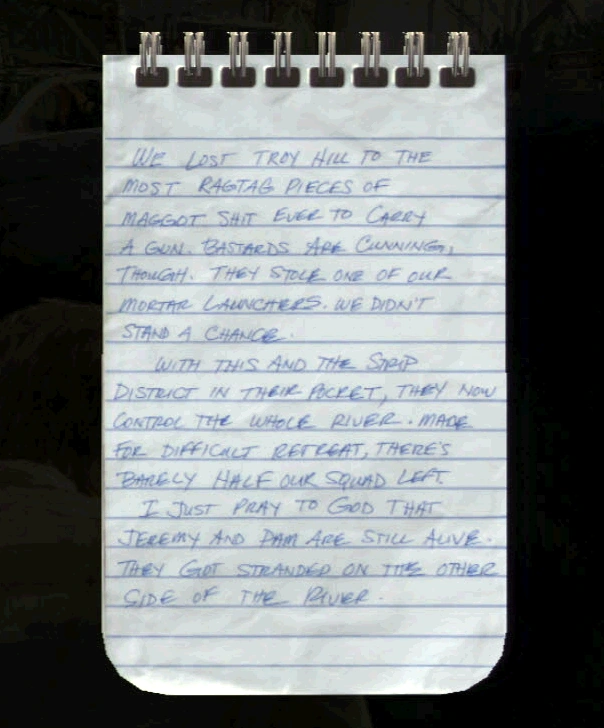 WE LOST TROY HILL TO THE
MOST RAGTAG PIECES OF
MAGGOT SHIT EVER TO CARRY
A GUN. BASTARDS ARE CUNNING,
THOUGH. THEY STOLE ONE OF OUR
MORTAR LAUNCHERS. WE DIDN'T
STAND A CHANCE.
WITH THIS AND THE STRIP
DISTRICT IN THEIR POCKET, THEY NOW
CONTROL THE WHOLE RIVER. MADE
FOR DIFFICULT RETREAT, THERE'S
BARELY HALF OUR SQUAD LEFT.
I JUST PRAY TO GOD THAT
JEREMY AND PAM ARE STILL ALIVE.
THEY GOT STRANDED ON THE OTHER
SIDE OF THE RIVER.